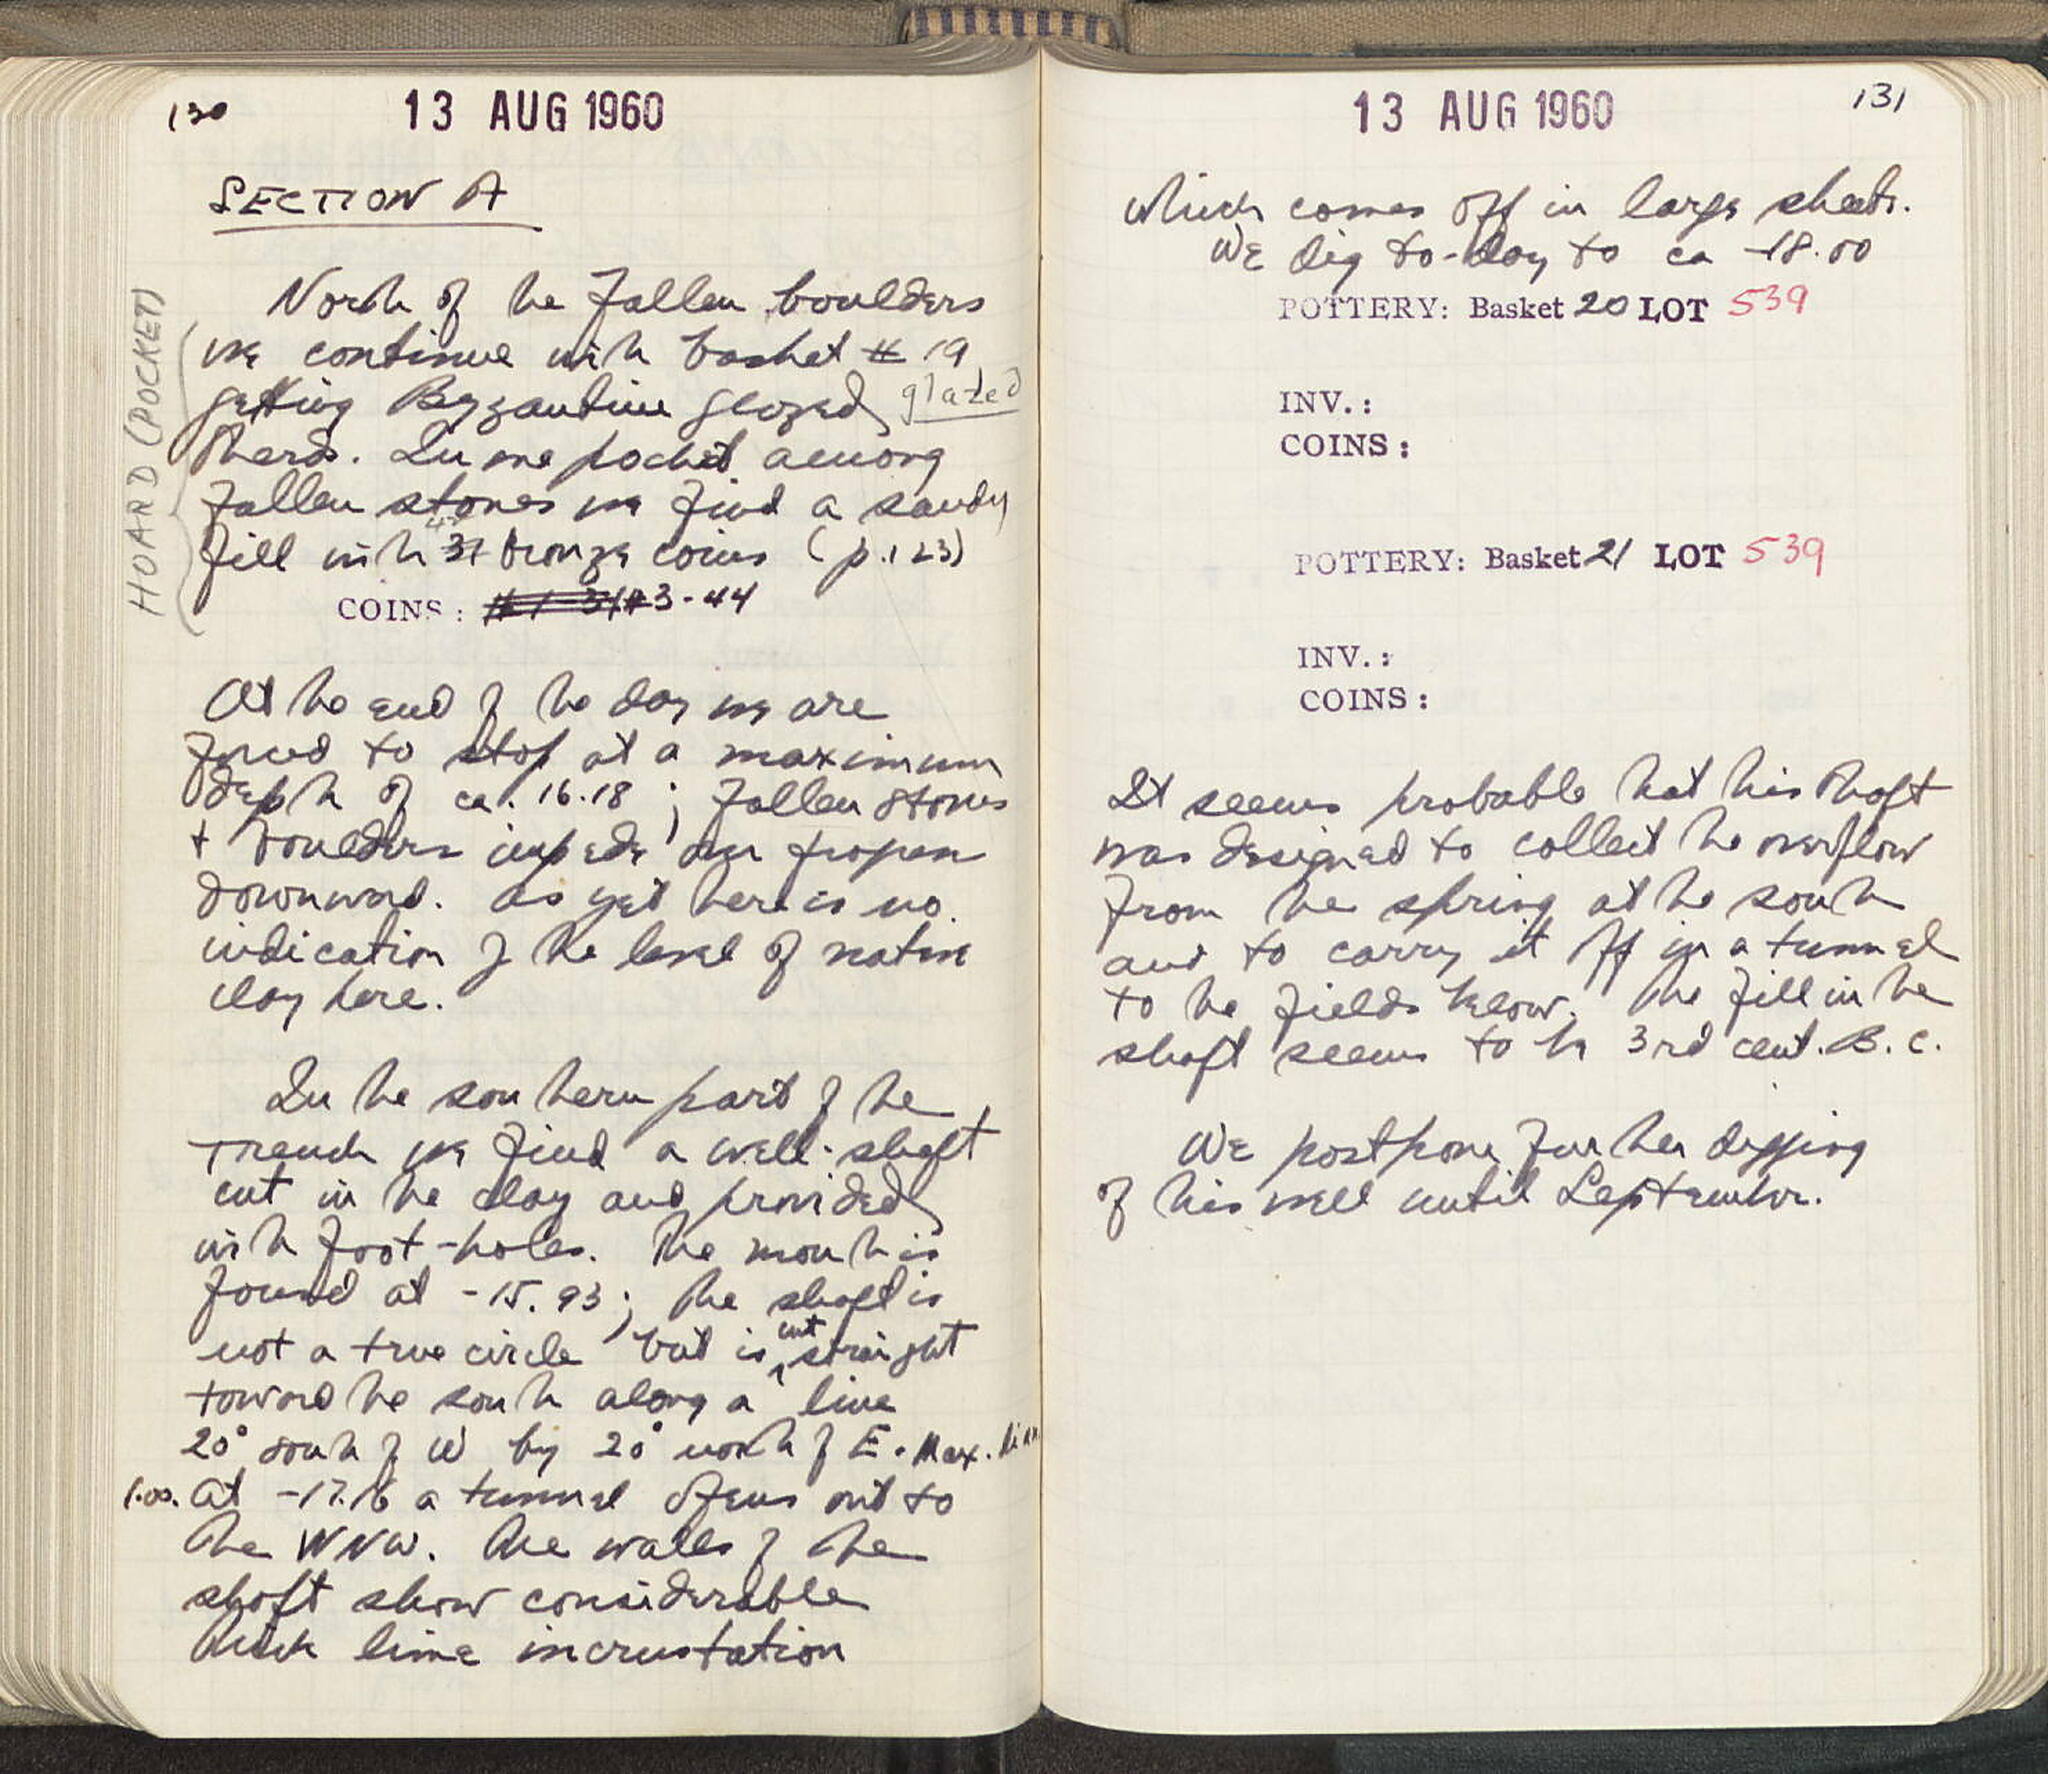 130
13 AUG 1960
SECTION A
HOARD (POCKET)
North of the fallen boulders
we continue with basket # 19
getting Byzantine glazed glazed
sherds. In one pocket among
fallen stones we find a sandy
fill with 31 42 bronze coins (p. 123)
COINS: #1-31 #3-44
At the end of the day we are
forced to stop at a maximum
depth of ca. 16.18; fallen stones
+ boulders impede our progress
downward. As yet there is no
indication of the level of native
clay here.
In the southern part of the
trench we find a well-shaft
cut in the clay and provided
with foot-holes. The mouth is
found at -15.93; the shaft is
not a true circle but is cut straight
toward the south along a line
20° south of W by 20° north of E. Max. diam
1.00. At -17.16 a tunnel opens out to
the WNW. The walls of the
shaft show considerable
thick lime incrustation
131
13 AUG 1960
which comes off in large sheets.
We dig to-day to ca -18.00
POTTERY: Basket 20 LOT 539
INV.:
COINS:
POTTERY: Basket 21 LOT 539
INV.:
COINS:
It seems probable that this shaft
was designed to collect the overflow
from the spring at the south
and to carry it off in a tunnel
to the fields below. The fill in the
shaft seems to be 3rd cent. B.C.
We postpone further digging
of this well until September.